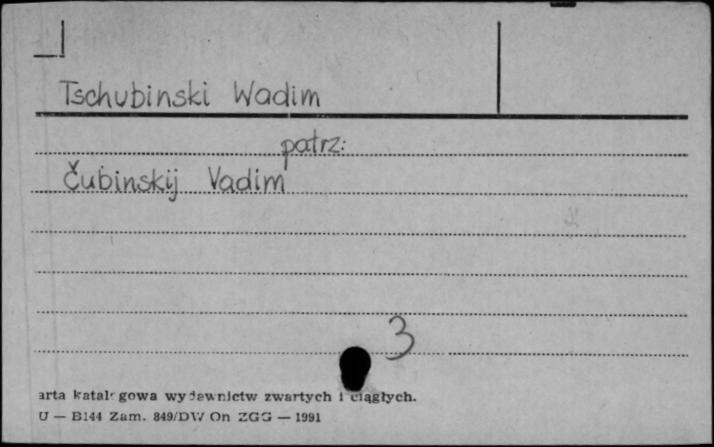 Tschubinski Wadim
patrz:
Čubinskij Vadim
3
arta katal gowa wydawnictw zwartych i ciągłych.
U — B144 Zam. 849/DW On ZGG — 1991